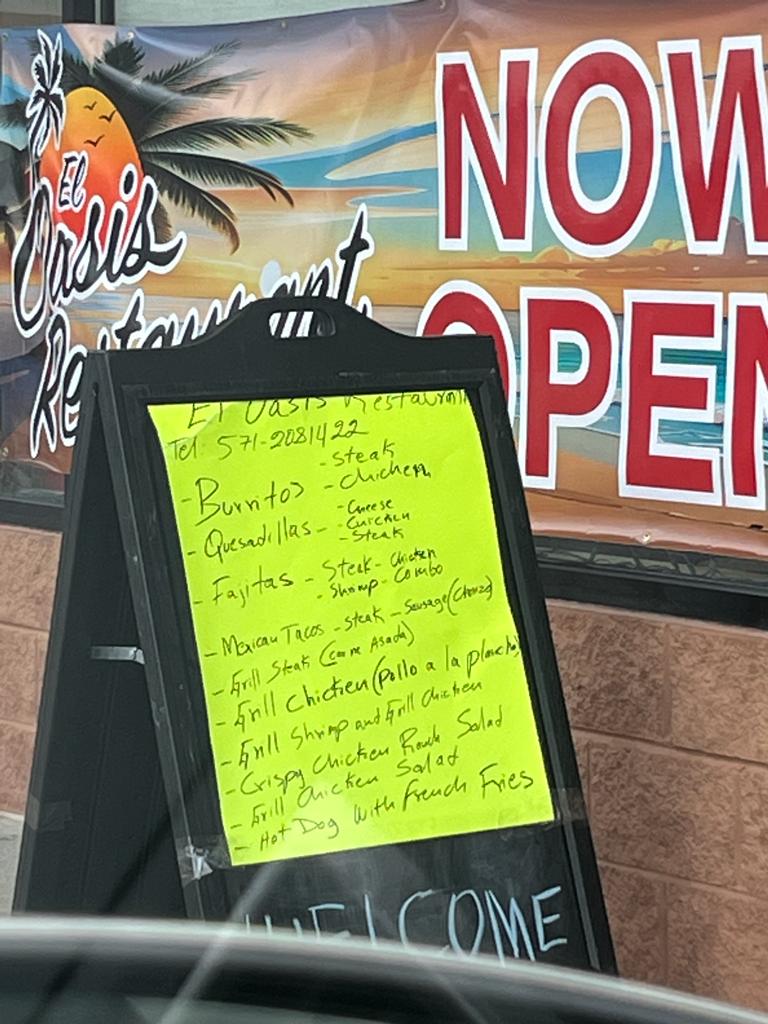 El
Oasis
Restaurant
NOW
OPEN
El Oasis Restaurant
Tel: 571-2081422
- Burritos - Steak
- Chicken
- Quesadillas - - Cheese
- Chicken
- Steak
- Fajitas - Steak - Chicken
- Shrimp - Combo
- Mexican Tacos - Steak - Sausage (Chorizo)
- Grill Steak (Carne Asada)
- Grill Chicken (Pollo a la plancha)
- Grill Shrimp and Grill Chicken
- Crispy Chicken Ranch Salad
- Grill Chicken Salad
- Hot Dog with French Fries
WELCOME